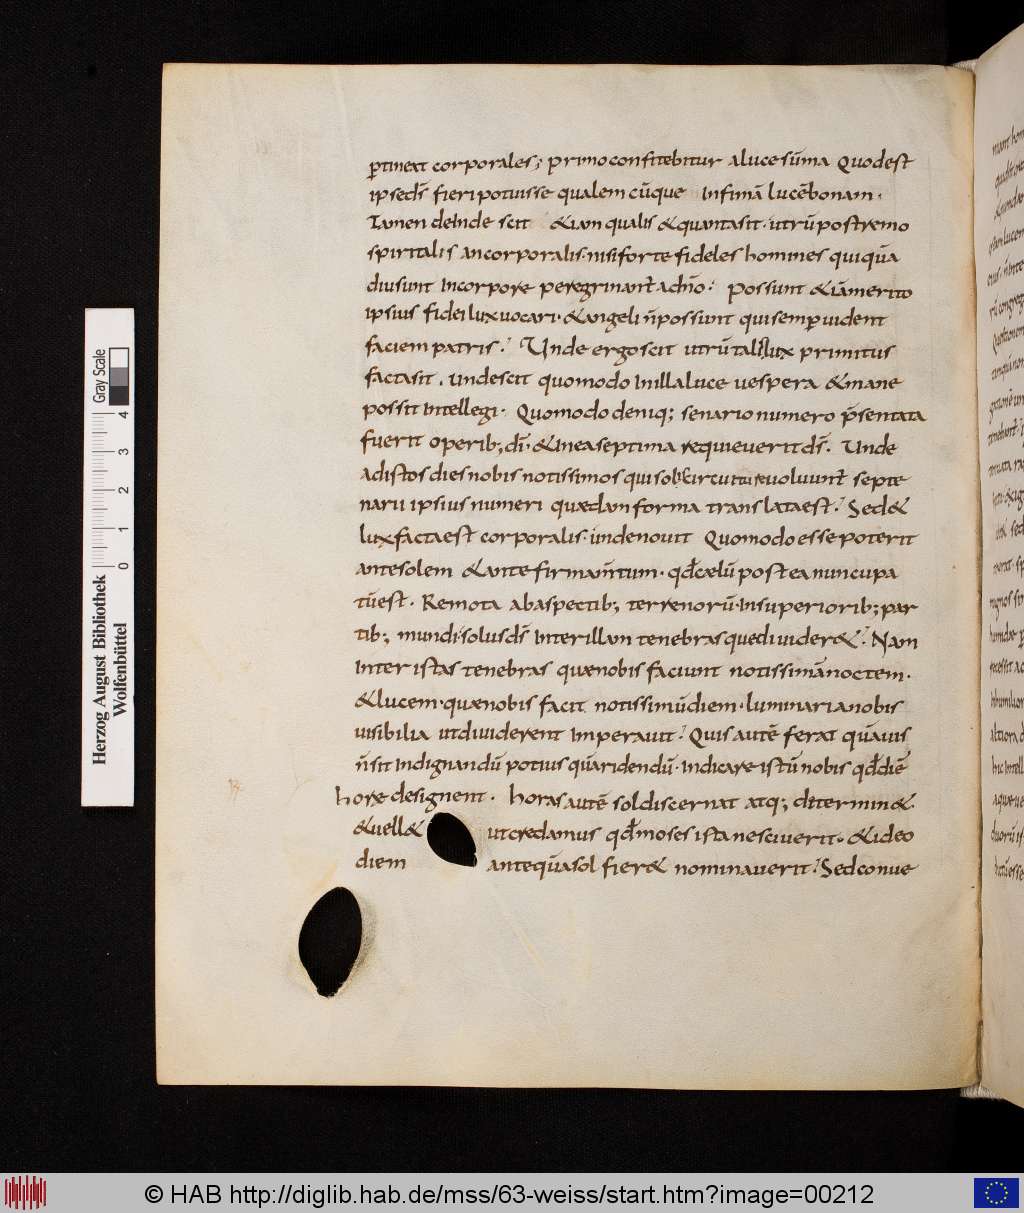 ptineat corporales; primo confitebitur aluce sūma Quodest
ipseds̄ fieri potuisse qualem cūque Infimā lucē bonam.
Tamen deinde scit &iam qualis &quantasit. utrū postremo
spiritalis ancorporalis. nisi forte fideles homines quiquā
diu sunt Incorpore peregrinant̄ adn̄o. Possunt &iā merito
ipsius fidei lux uocari. &angeli n̄possunt qui semp uident
faciem patris. Unde ergo scit utrū talis lux primitus
facta sit. undescit quomodo Inilla luce uespera &mane
possit Intellegi. Quomodo deniq; senario numero p̄sentata
fuerit operib; dī. &Inea septima requieuerit ds̄. Unde
adistos dies nobis notissimos qui solis circuitu reuoluunt̄ septe
narii ipsius numeri quædam forma translata est. Sed&
lux facta est corporalis. unde nouit Quomodo esse poterit
ante solem &ante firmam̄tum. qđ cælū postea nuncupa
tū est. Remota ab aspectib; terrenorū. Insuperiorib; par
tib; mundi. solus ds̄ Inter illam tenebras que diuider&. Nam
Inter istas tenebras quæ nobis faciunt notissimā noctem.
&lucem. quæ nobis facit notissimū diem. luminaria nobis
uisibilia ut diuiderent Imperauit. Quis autē ferat quāuis
n̄ sit Indignandū potius quā ridendū. Indicare istū nobis qđ diē
horæ designent. horas autē sol discernat atq; determin&.
&uell& ut credamus qđ moses ista nescıuerit. &ideo
diem antequā sol fier& nominauerit. Sed conue
Herzog August Bibliothek
Wolfenbüttel
0 1 2 3 4
Gray Scale
© HAB http://diglib.hab.de/mss/63-weiss/start.htm?image=00212